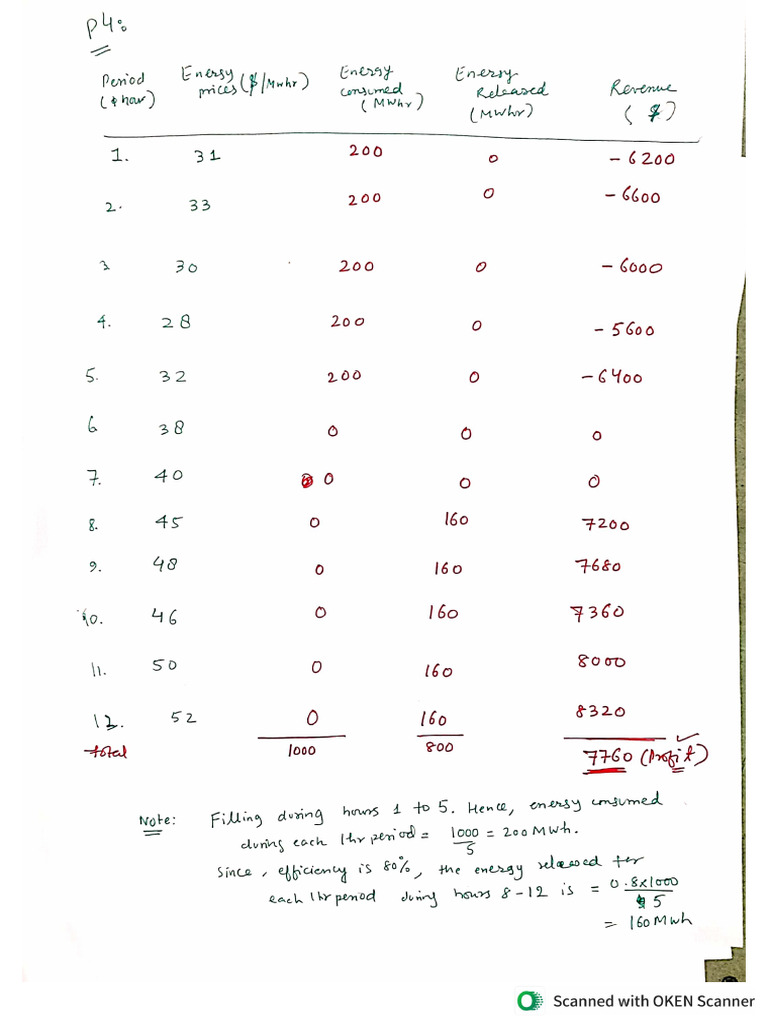 P4:
Period Energy Energy Energy Revenue
(hour) prices ($/Mwhr) consumed Released ($)
(MWhr) (MWhr)
1. 31 200 0 -6200
2. 33 200 0 -6600
3 30 200 0 -6000
4. 28 200 0 -5600
5. 32 200 0 -6400
6 38 0 0 0
7. 40 0 0 0
8. 45 0 160 7200
9. 48 0 160 7680
10. 46 0 160 7360
11. 50 0 160 8000
12. 52 0 160 8320
total 1000 800 7760 (Profit) ✓
Note: Filling during hours 1 to 5. Hence, energy consumed
during each 1hr period = 1000/5 = 200 MWh.
Since, efficiency is 80%, the energy released for
each 1hr period during hours 8-12 is = 0.8x1000/5
= 160 MWh
Scanned with OKEN Scanner